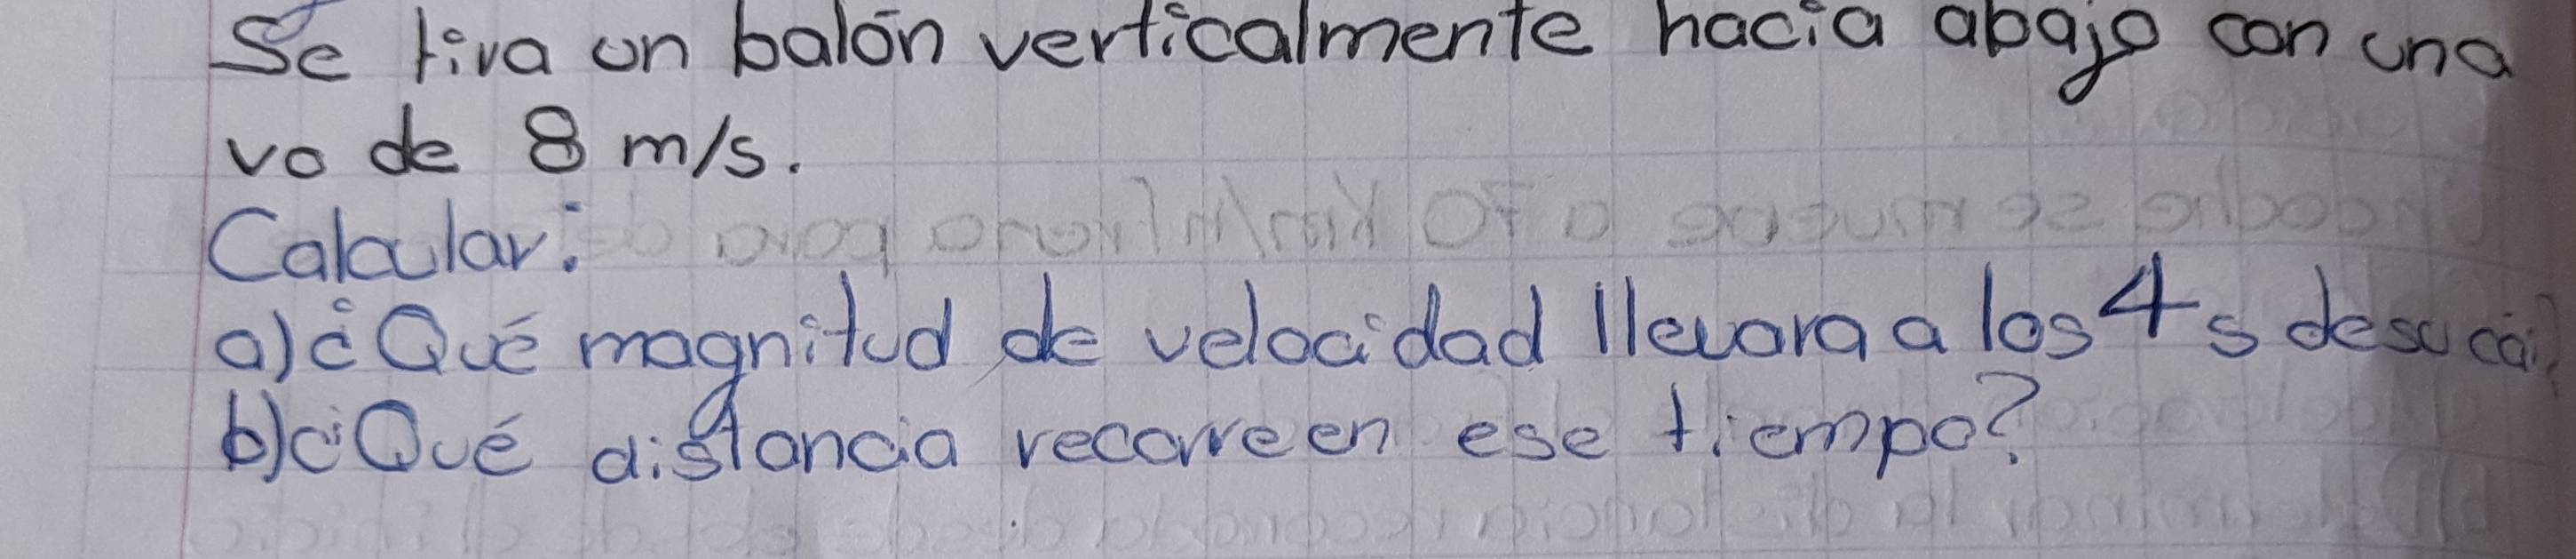 Se tira un balón verticalmente hacia abajo con una
vo de 8 m/s.
Calcular:
a) ¿Qué magnitud de velocidad llevara a los 4 s de su cai?
b) ¿Qué distancia recorre en ese tiempo?